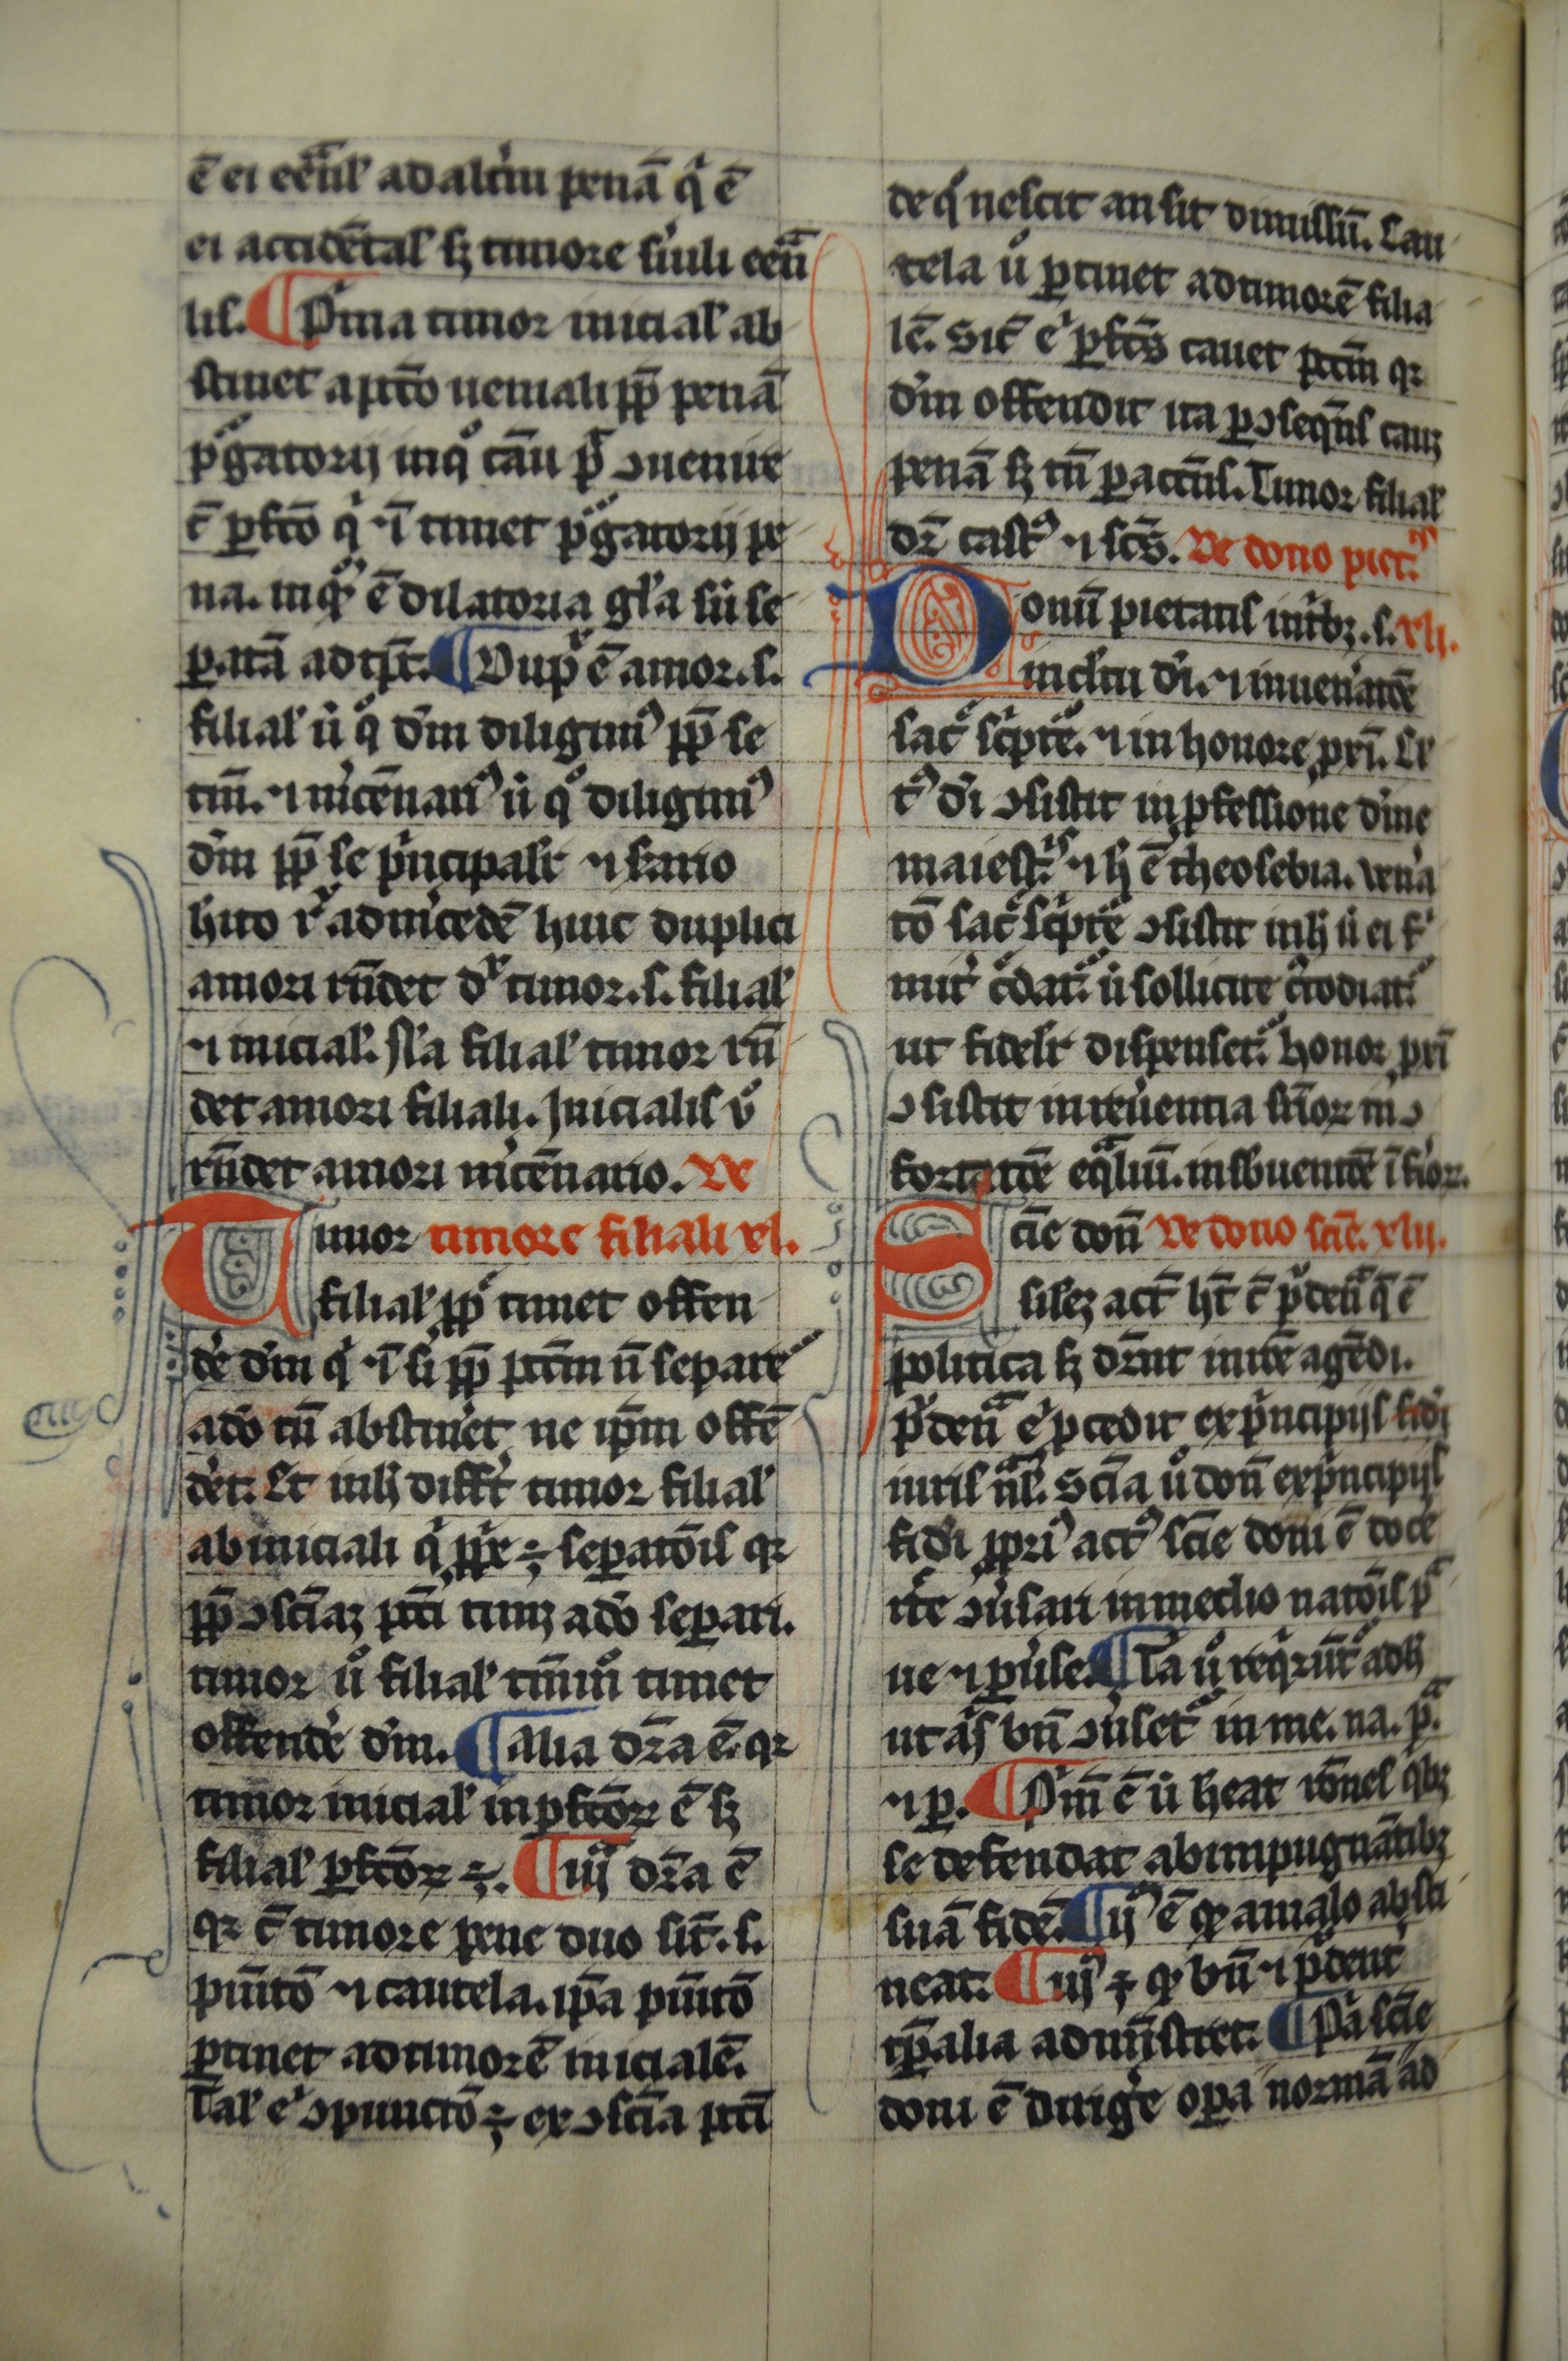 ē ei eēnl' ad alt'iu penā q' ē
ei accidētal' sꝫ timore s'uili eēn
lis. ¶ P'ma timor inicial' ab
stinet a pctō ueniali pp̄ penā
p'gatorij in q° cām p̄ ↄuenire
t̄ pfcō q' ⁊ ī timet p'gatorij pe
na. in q' ē dilatoria gl'a sū se
patā ad tp̄t. ¶ Dup ē amor. s.
filial' ū q° dm̄ diligim' pp̄ se
tm̄. ⁊ m'cēnari' ū q° diligim'
dm̄ pp̄ se p'ncipalr̄ ⁊ s'ario
h'ito r' ad m'cedē huic duplici
amori rn̄det d' timor. s. filial'
⁊ inicial'. Na filial' timor rn̄
det amori filiali. Inicialis v°
rn̄det amori m'cēnario. De
Timor timore filiali xl.
filial' pp' timet offen
de' dm̄ q' ⁊ ī si pp̄ pctm̄ n̄ separe
a dō tn̄ abstin'et ne ip̄m offē
de't. Et in h̄ diffr̄t timor filial'
ab iniciali q' ppe ÷ sepatōis qꝛ
pp̄ ↄsciaꝫ pcti timꝫ a dō separi.
timor ū filial' tm̄m° timet
offende' dm̄. ¶ Alia drā ē. qꝛ
timor inicial' in pfctōꝝ ē sꝫ
filial' pfctōꝝ ÷. ¶ iij drā ē
qꝛ c̄ timore pene duo sūt. s.
pūitō ⁊ cautela. ip̄a pūitō
ptinet ad timorē inicialē.
Tal' e' ↄpunctō ÷ ex ↄscia pcti
de q° nescit an sit dimissū. Cau
tela ū ptinet ad timorē filia
lē. Sic̄ e' pfcs̄ cauet pctm̄ qꝛ
dm̄ offendit ita p ↄseq̄ns cauꝫ
penā sꝫ tn̄ p accn̄s. Timor filial'
dr̄ cast' ⁊ scs̄. De dono piet.
Donū pietatis in t'bꝫ. s. xli.
in cl'tu di. ⁊ in uen'atōē
sac' sc'pte. ⁊ in honore pxi. Cl'
t' di ↄsistit in pfessione di'ne
maiest. ⁊ h̄ ē theosebia. ven'a
tō sac' sc'pte ↄsistit in h̄ ū ei f'
mit' c'dat. ū sollicite c'todiat.
ut fidelr̄ dispenset. honor pxi
ↄsistit in reu'entia s'rioꝝ in ↄ
formitatē eq̄liū. in sbuentōē īf'ioꝝ.
Scie don̄ De dono scie. xlij.
silez act̄ ht̄ c̄ p'denā q̄ ē
politica sꝫ dr̄nt in itē agēdi.
p'denā e' pcedit ex p'ncipijs fidi
iuris nl'. Scia ū don̄ ex p'ncipijs
fidi ppri' act' scie doni ē doce
rēe ↄu'sari in medio natōis p'
ue ⁊ pu'se. ¶ Ta ū req'rūt' ad h̄
ut a's bn̄ ↄu'set' in me. na. p.
⁊ p. ¶ P'm ē ū heat rōnes q'bꝫ
se defendat ab impugnātibꝫ
suā fidē. ¶ ij' ē qꝛ a malo absti
neat. ¶ iij ÷ qꝛ bn̄ ⁊ p'dent'
tp̄alia adm̄istret. ¶ Pa scie
doni ē dirige' opa normā ad